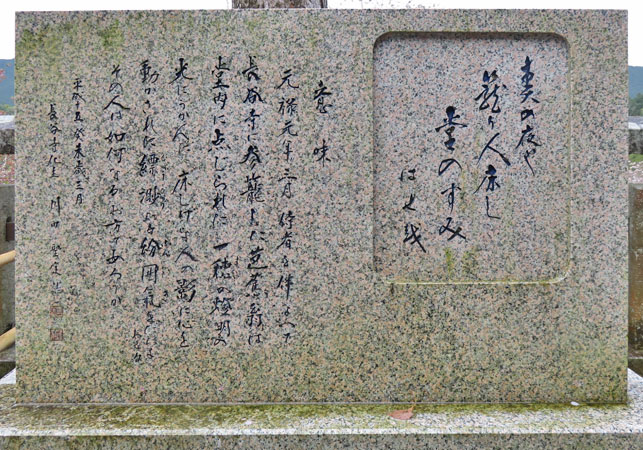 春の夜や
籠り人床し
堂のすみ
はせを
意味
元禄元年三月 侍者を伴って
長谷寺に参籠した芭蕉翁は
堂内に点じられた一穂の燈明の
光にうかんだ床しげな人の影に心を
動かされた 縹渺たる雰囲気を
その人は如何なるお方であろうか
平成十五癸未歳三月
長谷寺化主